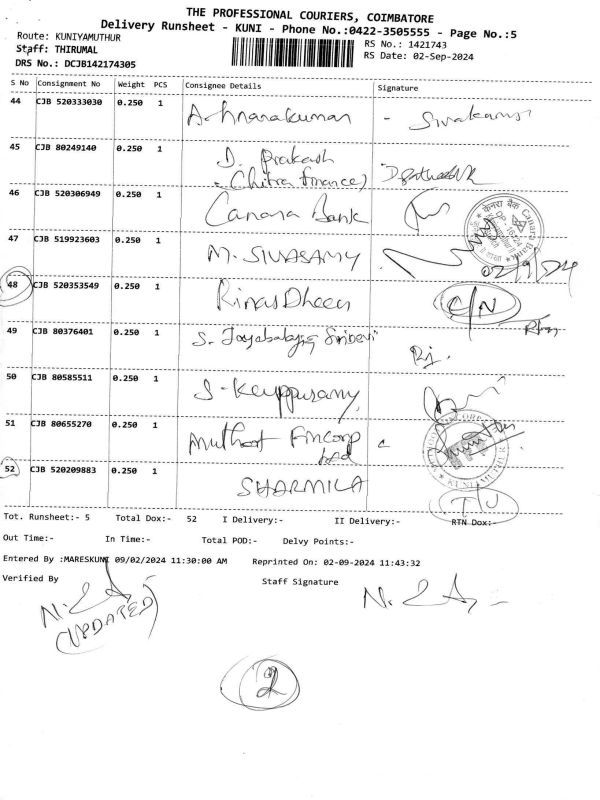 THE PROFESSIONAL COURIERS, COIMBATORE
Delivery Runsheet - KUNI - Phone No.:0422-3505555 - Page No.:5
Route: KUNIYAMUTHUR
RS No.: 1421743
Staff: THIRUMAL
RS Date: 02-Sep-2024
DRS No.: DCJB142174305
S No Consignment No Weight PCS Consignee Details Signature
44 CJB 520333030 0.250 1
45 CJB 80249140 0.250 1 D. Prakash
(Chitra finance)
46 CJB 520306949 0.250 1 Canara Bank
केनरा बैंक Canara Bank
47 CJB 519923603 0.250 1 M. SIVASAMY
02/9/24
48 CJB 520353549 0.250 1 C/N
49 CJB 80376401 0.250 1 Rj.
50 CJB 80585511 0.250 1
51 CJB 80655270 0.250 1 Muthoot Fincorp
Ltd
52 CJB 520209883 0.250 1 SHARMILA
Tot. Runsheet:- 5 Total Dox:- 52 I Delivery:- II Delivery:- RTN Dox:-
Out Time:- In Time:- Total POD:- Delvy Points:-
Entered By :MARESKUNI 09/02/2024 11:30:00 AM Reprinted On: 02-09-2024 11:43:32
Verified By Staff Signature
(UPDATED)
2